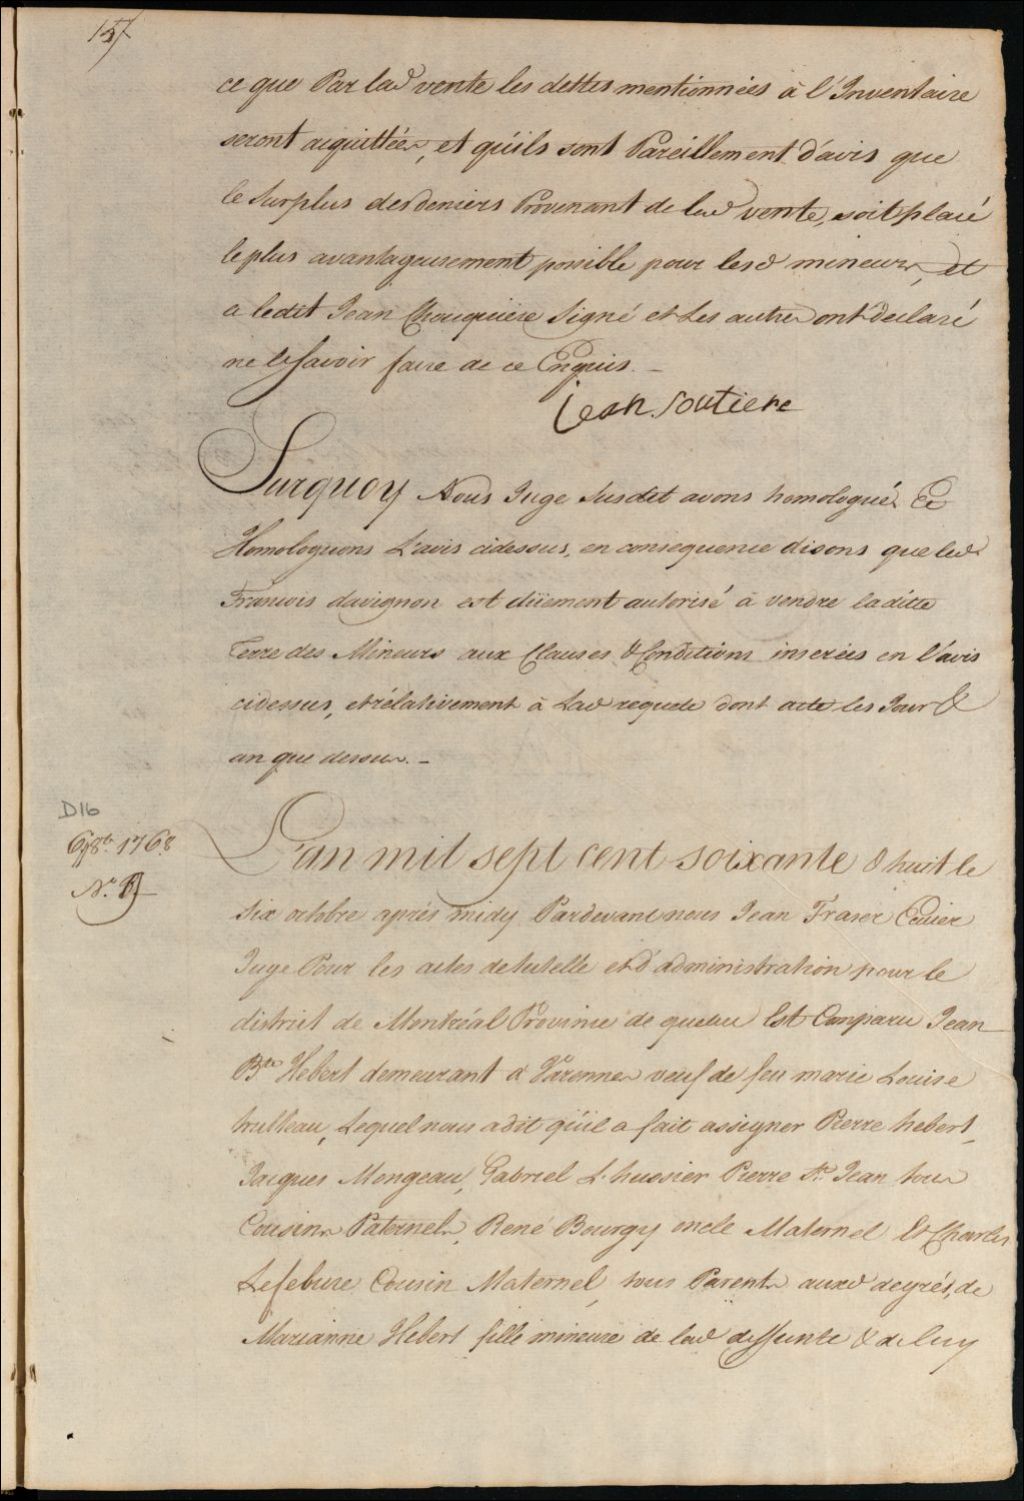 157
ce que Par lad vente les dettes mentionnées à l'Inventaire
seront acquittées, et qu'ils sont Pareillement d'avis que
le surplus des deniers Provenant de lad vente, soit placé
le plus avantageusement possible pour lesd mineurs, et
a ledit Jean Signé et Les autres ont déclaré
ne le sçavoir faire de ce Enquis. _
jean soutiere
Surquoy Nous Juge susdit avons homologué Et
Homologuons L'avis cidessus, en consequence disons que led
Francois davignon est düement autorisé à vendre laditte
Terre des Mineurs aux Clauses & Conditions inserées en l'avis
cidessus, et rélativement à Lad requete dont acte les Jour &
an que dessus. _
D16
6 8bre 1768
No.
L'an mil sept cent soixante & huit le
six octobre aprés midy Pardevant nous Jean Fraser Ecuier
Juge Pour les actes de tutelle et d'administration pour le
district de Montréal Province de quebec Est Comparu Jean
Bte Hebert demeurant à Varennes veuf de feu marie Louise
trulleau, Lequel nous a dit qu'il a fait assigner Pierre hebert,
Jacques Mongeau, Gabriel L'hussier Pierre St. Jean tous
Cousins Paternels, René Bourgy oncle Maternel Et Charles
Lefebure Cousin Maternel, tous Parents auxd degrés, de
Marianne Hebert fille mineure de lad deffunte & de luy